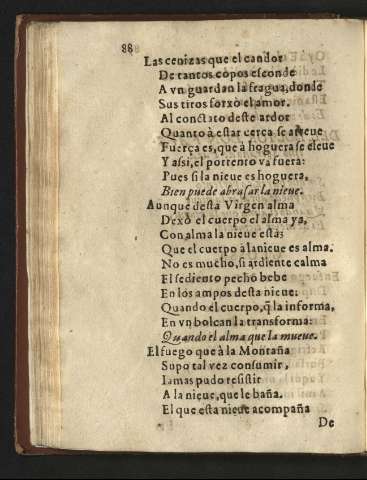 88
Las cenizas que el candor
De tantos copos esconde
A vn guardan la fragua, donde
Sus tiros forxò el amor.
Al contato deste ardor
Quanto à estar cerca se atreue
Fuerça es, que à hoguera se eleue
Y assi, el portento va fuera:
Pues si la nieue es hoguera,
Bien puede abrasar la nieue.
Aunque desta Virgen alma
Dexò el cuerpo el alma ya,
Con alma la nieue està;
Que el cuerpo à la nieue es alma.
No es mucho, si ardiente calma
El sediento pecho bebe
En los ampos desta nieue:
Quando el cuerpo, q̃ la informa,
En vn bolcan la transforma:
Quando el alma que la mueue.
El fuego que à la Montaña
Supo tal vez consumir,
Iamas pudo resistir
A la nieue, que le baña.
El que esta nieue acompaña
De